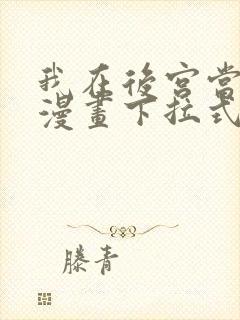 我在後宮當
漫畫下拉式
滕青